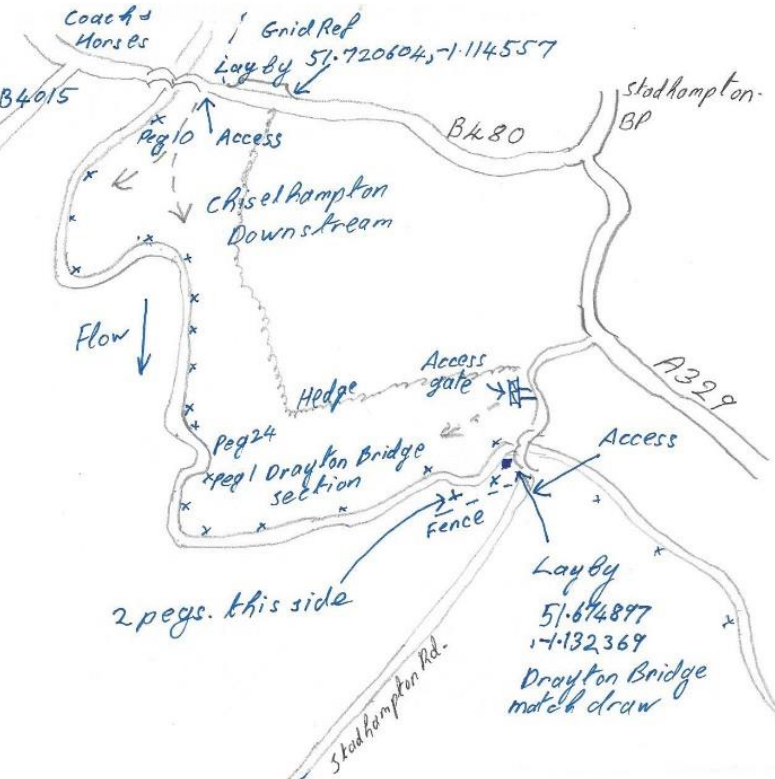 Coach &
Horses
Grid Ref
Layby 51.720604,-1.114557
B4015
Stadhampton-
BP
Peg 10
Access
B480
Chiselhampton
Downstream
Flow
Access
gate
Hedge
A329
Peg 24
Peg 1 Drayton Bridge
section
Access
Fence
2 pegs. this side
Layby
51.674897
,-1.132369
Drayton Bridge
match draw
Stadhampton Rd.